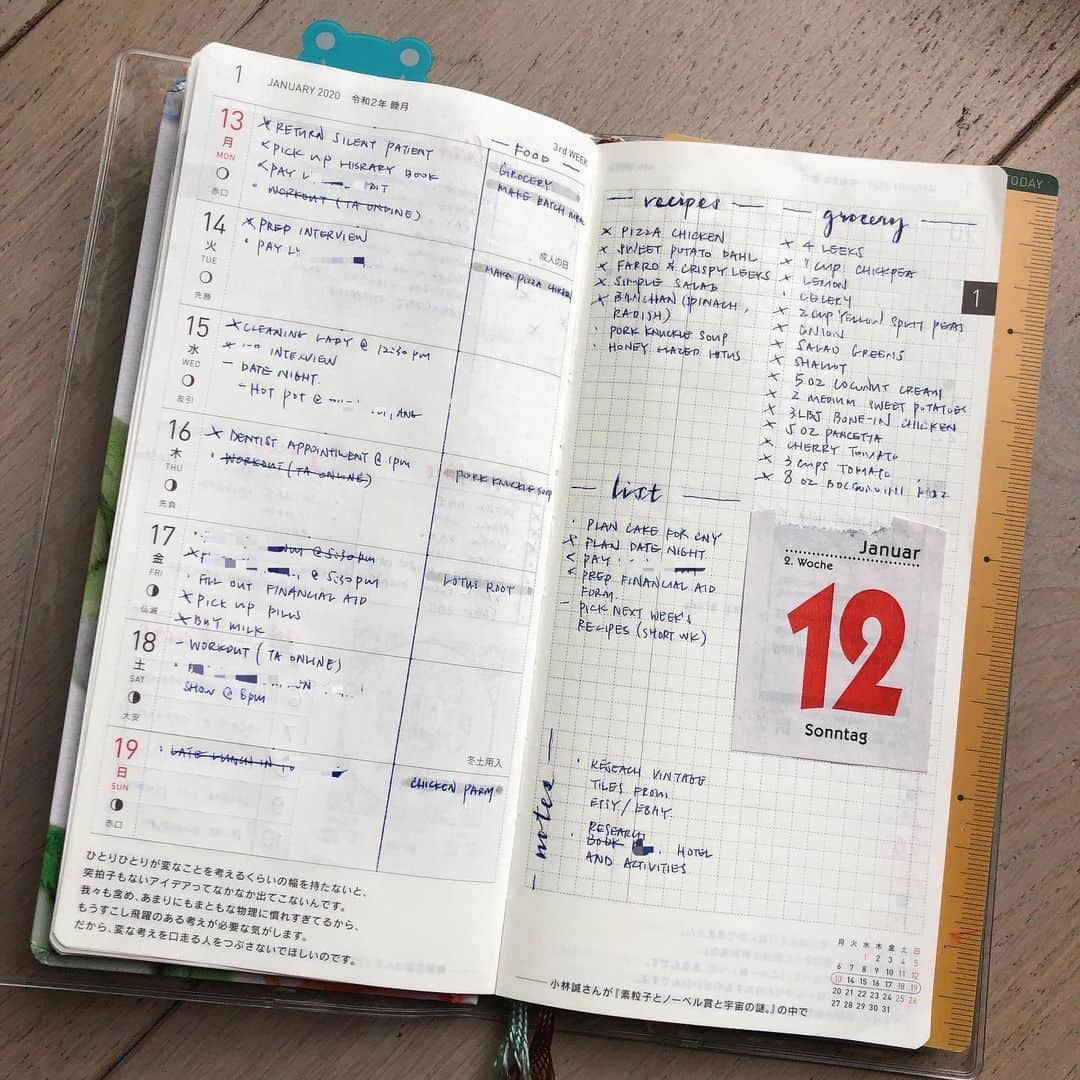 1 JANUARY 2020 令和2年 睦月
3rd WEEK
FOOD
13
月
MON
赤口
× RETURN SILENT PATIENT
< PICK UP LIBRARY BOOK
< PAY
• WORKOUT (TA ONLINE)
GROCERY
MAKE BATCH
成人の日
14
火
TUE
先勝
× PREP INTERVIEW
• PAY
MAKE PIZZA CHICKEN
15
水
WED
友引
× CLEANING LADY @ 12:30 pm
× INTERVIEW
– DATE NIGHT.
– HOT POT @
16
木
THU
先負
× DENTIST APPOINTMENT @ 1pm
• WORKOUT (TA ONLINE)
PORK KNUCKLE SOUP
17
金
FRI
仏滅
@ 5:30 pm
@ 5:30pm
• FILL OUT FINANCIAL AID
× PICK UP PILLS
× BUY MILK
LOTUS ROOT
18
土
SAT
大安
– WORKOUT (TA ONLINE)
SHOW @ 8pm
冬土用入
19
日
SUN
赤口
• LATE LUNCH IN
CHICKEN PARM
ひとりひとりが変なことを考えるくらいの幅を持たないと、
突拍子もないアイデアってなかなか出てこないんです。
我々も含め、あまりにもまともな物理に慣れすぎてるから、
もうすこし飛躍のある考えが必要な気がします。
だから、変な考えを口走る人をつぶさないでほしいのです。
TODAY
1
— recipes —
× PIZZA CHICKEN
× SWEET POTATO DAHL
× FARRO & CRISPY LEEKS
× SIMPLE SALAD
× BANCHAN (SPINACH,
RADISH)
• PORK KNUCKLE SOUP
• HONEY GLAZED LOTUS
— grocery —
× 4 LEEKS
× 1 CUP CHICKPEA
× LEMON
• CELERY
× 2 CUP YELLOW SPLIT PEAS
× ONION
× SALAD GREENS
× SHALLOT
× 5 OZ COCONUT CREAM
× 2 MEDIUM SWEET POTATOES
× 3 LBS BONE-IN CHICKEN
× 5 OZ PANCETTA
× CHERRY TOMATO
× 3 CUPS TOMATO
× 8 OZ
— list —
• PLAN CAKE FOR CNY
× PLAN DATE NIGHT
< PAY
< PREP FINANCIAL AID
FORM.
– PICK NEXT WEEK'S
RECIPES (SHORT WK)
Januar
2. Woche
12
Sonntag
— notes —
• RESEACH VINTAGE
TILES FROM
ETSY / EBAY.
RESEARCH
• BOOK HOTEL
AND ACTIVITIES
月 火 水 木 金 土 日
1 2 3 4 5
6 7 8 9 10 11 12
13 14 15 16 17 18 19
20 21 22 23 24 25 26
27 28 29 30 31
小林誠さんが『素粒子とノーベル賞と宇宙の謎。』の中で